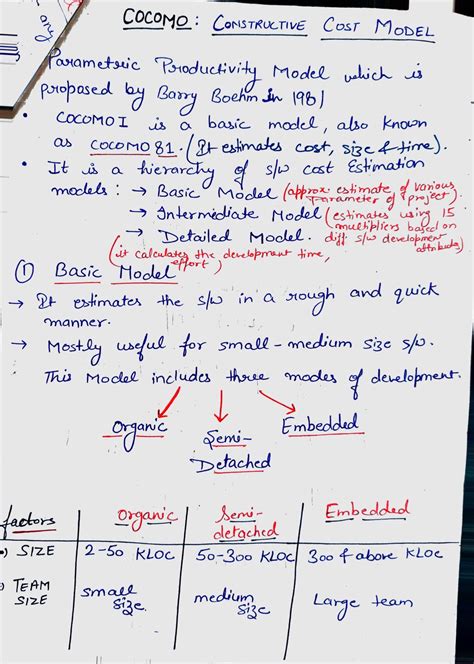 COCOMO : CONSTRUCTIVE COST MODEL
Parametric Productivity Model which is
proposed by Barry Boehm in 1981
• COCOMO I is a basic model, also known
as COCOMO 81. (It estimates cost, size & time).
• It is a hierarchy of s/w cost Estimation
models : → Basic Model (approx. estimate of various
Parameter of project).
→ Intermediate Model (estimates using 15
multipliers based on
→ Detailed Model. diff s/w development
attributes)
(it calculates the development time,
effort)
① Basic Model
→ It estimates the s/w in a rough and quick
manner.
→ Mostly useful for small-medium size s/w.
This Model includes three modes of development.
Organic
Semi-
Detached
Embedded
factors Organic Semi-
detached Embedded
SIZE 2-50 KLOC 50-300 KLOC 300 & above KLOC
TEAM
SIZE small
size. medium
size Large team